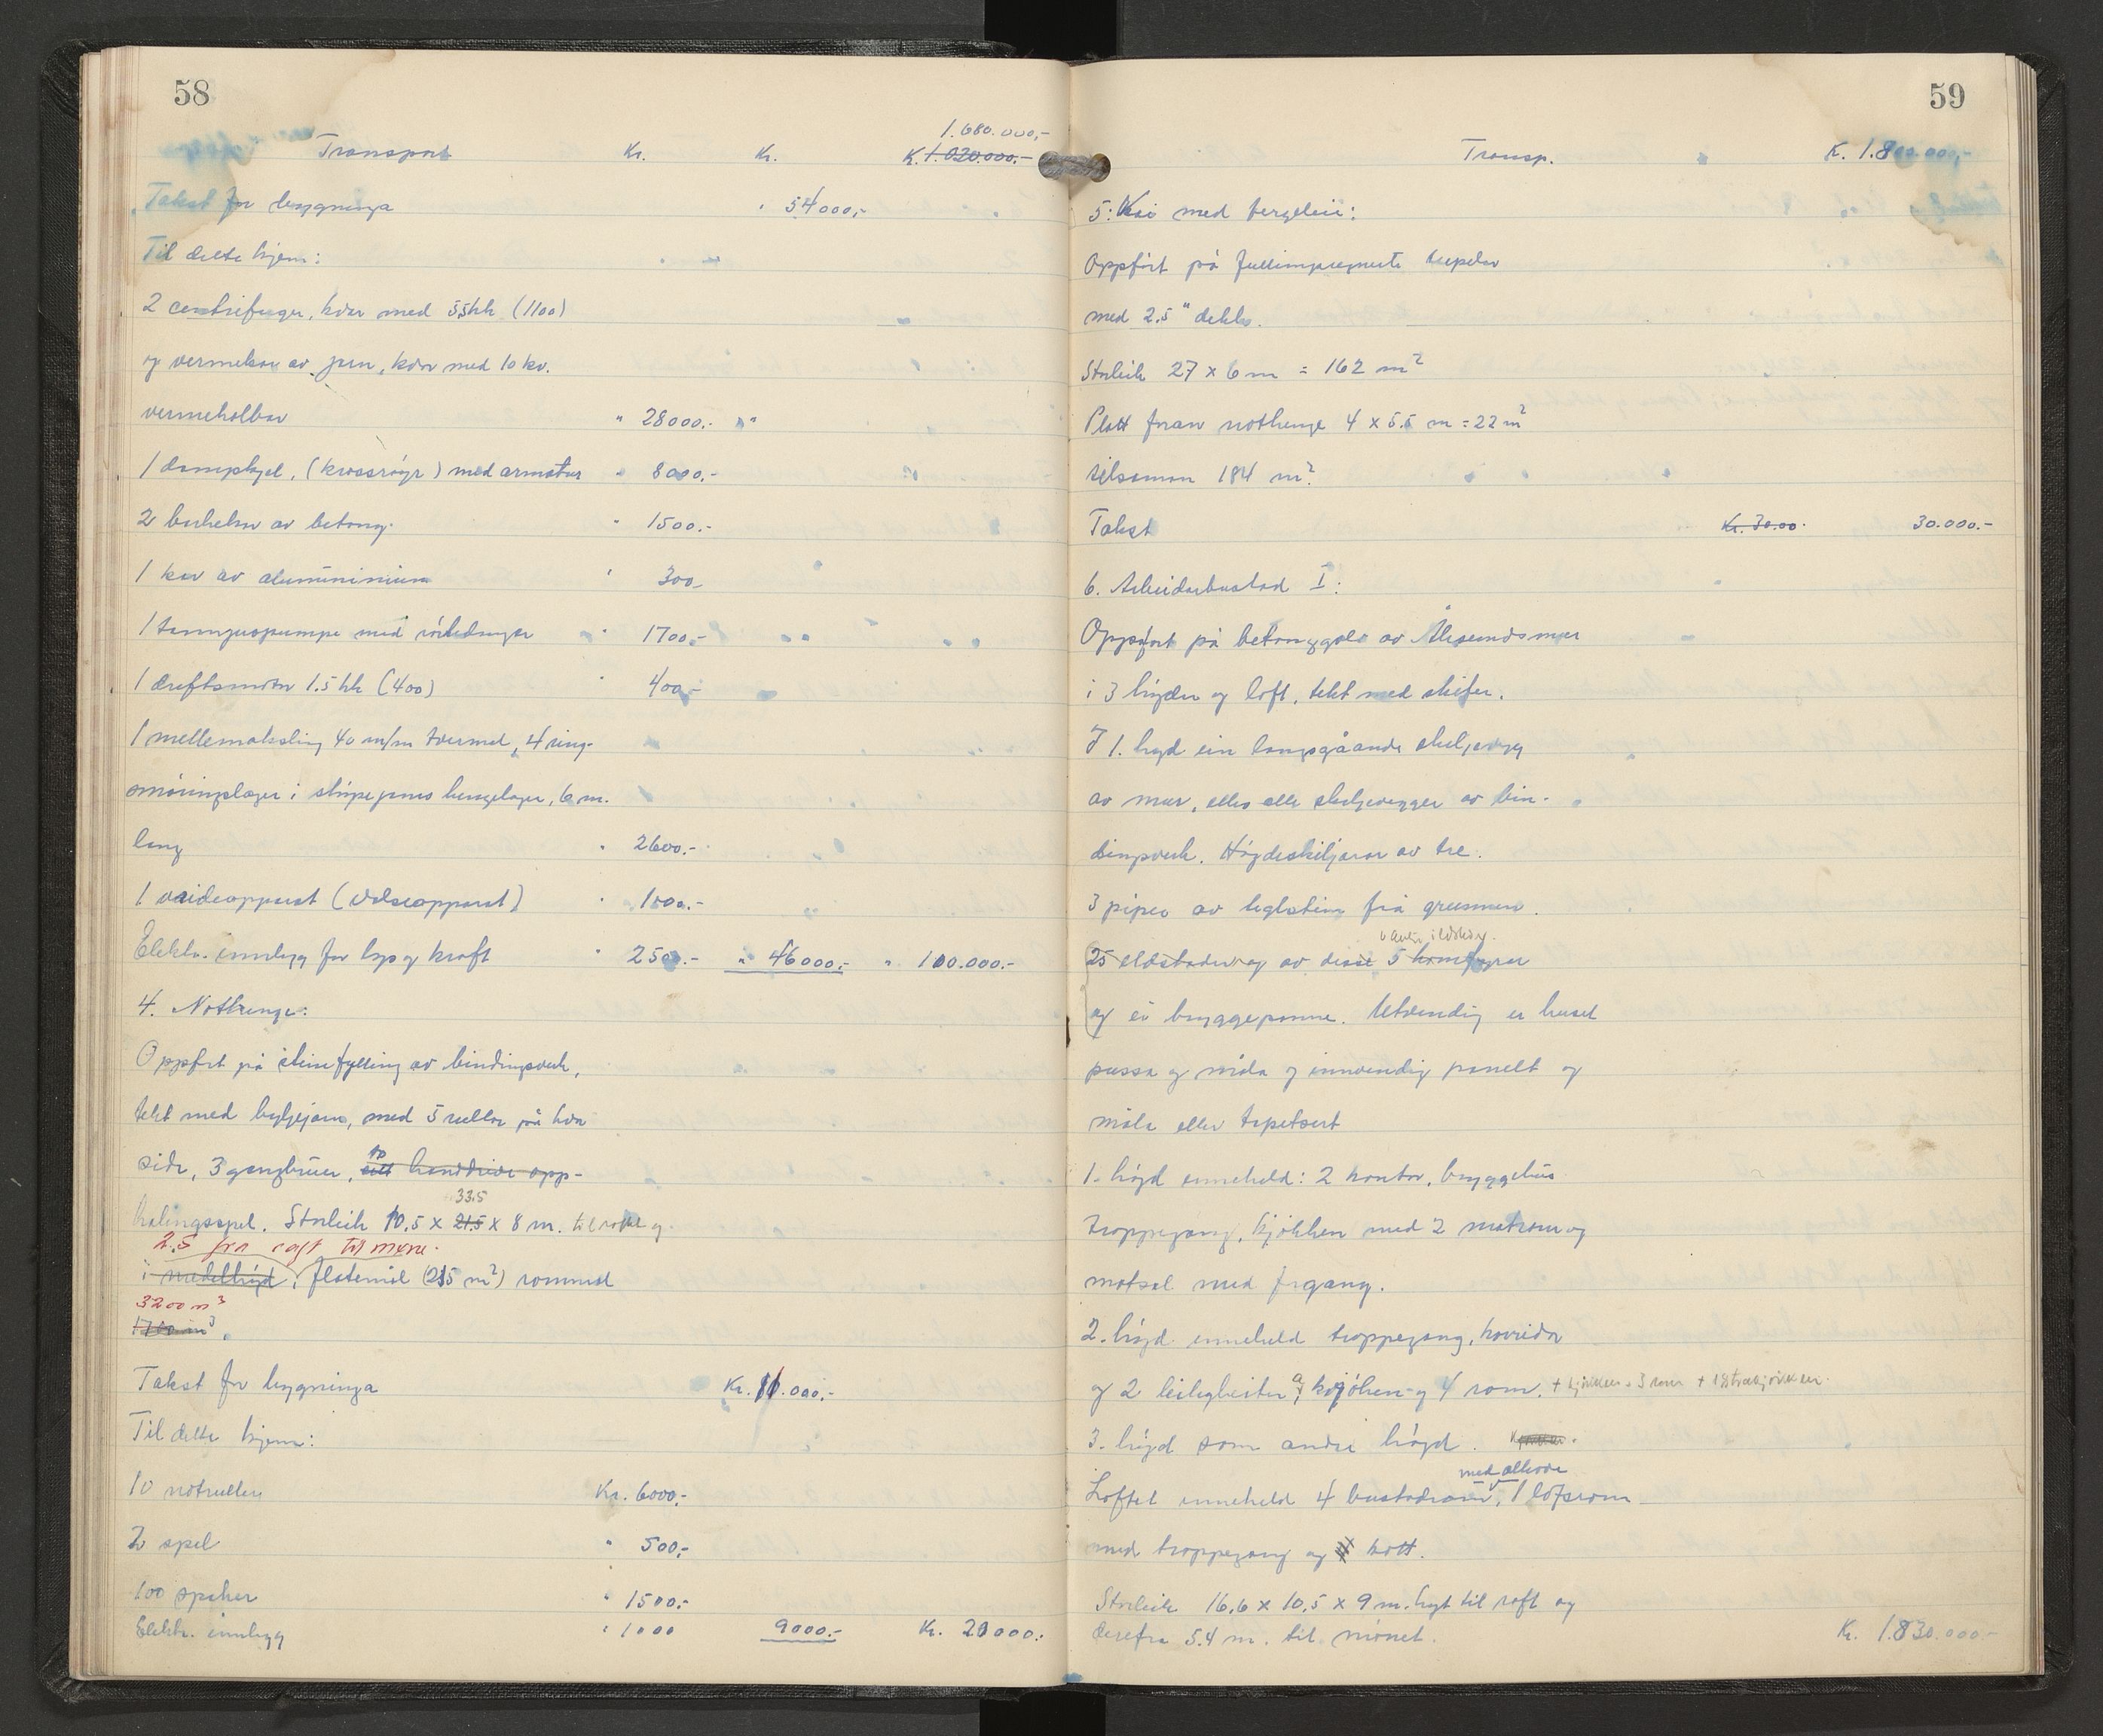 58
1.680.000,-
Transport Kr. Kr. K. 1.020.000,-
Takst for bygninga " 54000,-
Til dette kjem:
2 centrifuger, kvar med 5,5 hk (1100)
og vermekar av jern, kvar med 10 kv.
vermekolbar " 28000.- " "
1 dampkjel, (krossrøyr) med armatur " 8000,-
2 barkekar av betong. " 1500.-
1 kar av aluminimium " 300,-
1 pumpe med rörledningar " 1700,-
1 driftsmotor 1.5 hk (400) " 400,-
1 mellemaksling 40 m/m tvermål, 4 ring-
smøringslager i støpejerns hengelager, 6 m.
lang " 2600.-
1 vaideapparat (valseapparat) " 1000.-
Elektr. innlegg for lys og kraft " 2500.- " 46000,- " 100.000.-
4. Nothenge:
Oppført på steinfylling av bindingsverk,
tekt med bylgjejarn, med 5 rullar på kvar
to
side, 3 gangbruer, eitt handdrive opp-
33.5
halingsspel. Storleik 10,5 x 21.5 x 8 m. til raft og
2.5 fra raft til møne.
i medelhøgd, flatemål (215 m²) rommål
3200 m³
1700 m³.
Takst for bygninga Kr. 11.000,-
Til dette kjem:
10 notrullar Kr. 6000,-
2 spel " 500,-
100 spaker " 1500.-
Elektr. innlegg " 1000 9000.- Kr. 20000.-
59
Transp. K. 1.800.000,-
5. Kai med bergeleie:
Oppført på fullimpregnerte
med 2.5" dekke.
Storleik 27 x 6 m = 162 m²
Platt foran nothenge 4 x 5.5 m = 22 m²
tilsaman 184 m².
Takst Kr. 30.00. 30.000.-
6. Arbeidarbustad I:
Oppført på betonggolv av Ålesundsmur
i 3 høgder og loft, tekt med skifer.
I 1. høgd ein langsgåande skiljevegg
av mur, elles alle skiljevegger av bin-
dingsverk. Høgdeskiljarar av tre.
3 piper av teglstein frå grunnen.
25 eldstader og av desse 5 komfyrar
og ei bryggepanne. Utvendig er huset
pussa og måla og innvendig panelt og
måla eller tapetsert
1. høgd inneheld: 2 kontor, bryggehus
troppegang, kjøkken med 2 matrom og
matsal med forgang.
2. høgd inneheld troppegang, korridor
og 2 leilegheiter á kjøken og 4 rom. + kjøkken + 3 rom + 1 kjøkken.
3. høgd som andre høgd.
med alkove
Loftet inneheld 4 bustadrom, 1 loftsrom
med troppegang og kott.
Storleik 16,6 x 10,5 x 9 m. høgt til raft og
derefra 5.4 m. til mønet. Kr. 1.830.000.-